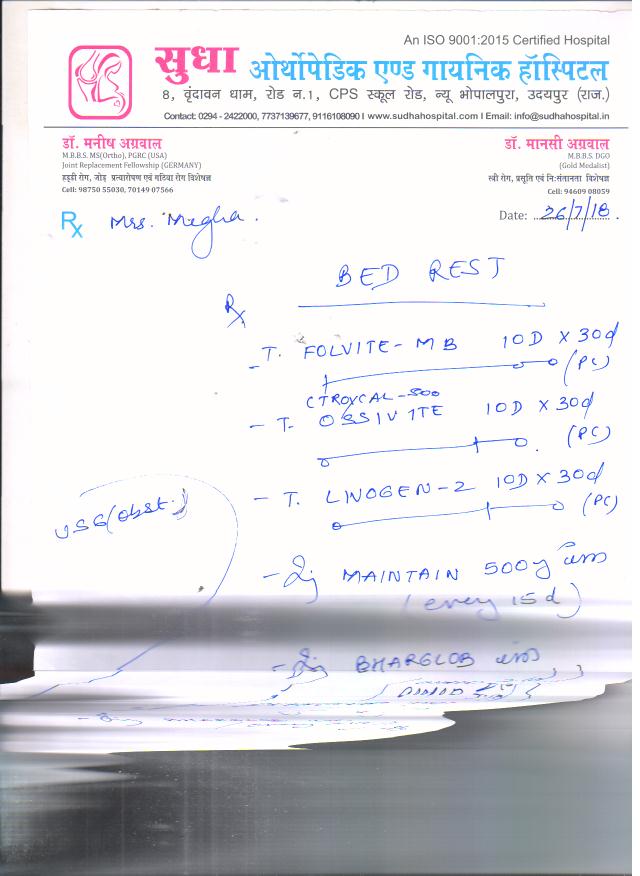 An ISO 9001:2015 Certified Hospital
सुधा ओर्थोपेडिक एण्ड गायनिक हॉस्पिटल
8, वृंदावन धाम, रोड न.1, CPS स्कूल रोड, न्यू भोपालपुरा, उदयपुर (राज.)
Contact: 0294 - 2422000, 7737139677, 9116108090 I www.sudhahospital.com I Email: info@sudhahospital.in
डॉ. मनीष अग्रवाल
M.B.B.S. MS(Ortho), PGRC (USA)
Joint Replacement Fellowship (GERMANY)
हड्डी रोग, जोड़ प्रत्यारोपण एवं गठिया रोग विशेषज्ञ
Cell: 98750 55030, 70149 07566
डॉ. मानसी अग्रवाल
M.B.B.S. DGO
(Gold Medalist)
स्त्री रोग, प्रसूति एवं नि:संतानता विशेषज्ञ
Cell: 94609 08059
Rx Mrs. Megha.
Date: 26/7/18.
BED REST
Rx
- T. FOLVITE-MB 10D X 30d
(PC)
CTROYCAL-500
- T. OSSIVITE 10D X 30d
(PC)
- T. LINOGEN-2 10D X 30d
(PC)
USG (obst.)
- Inj MAINTAIN 500
(every 15d)
- Inj BHARGLOB